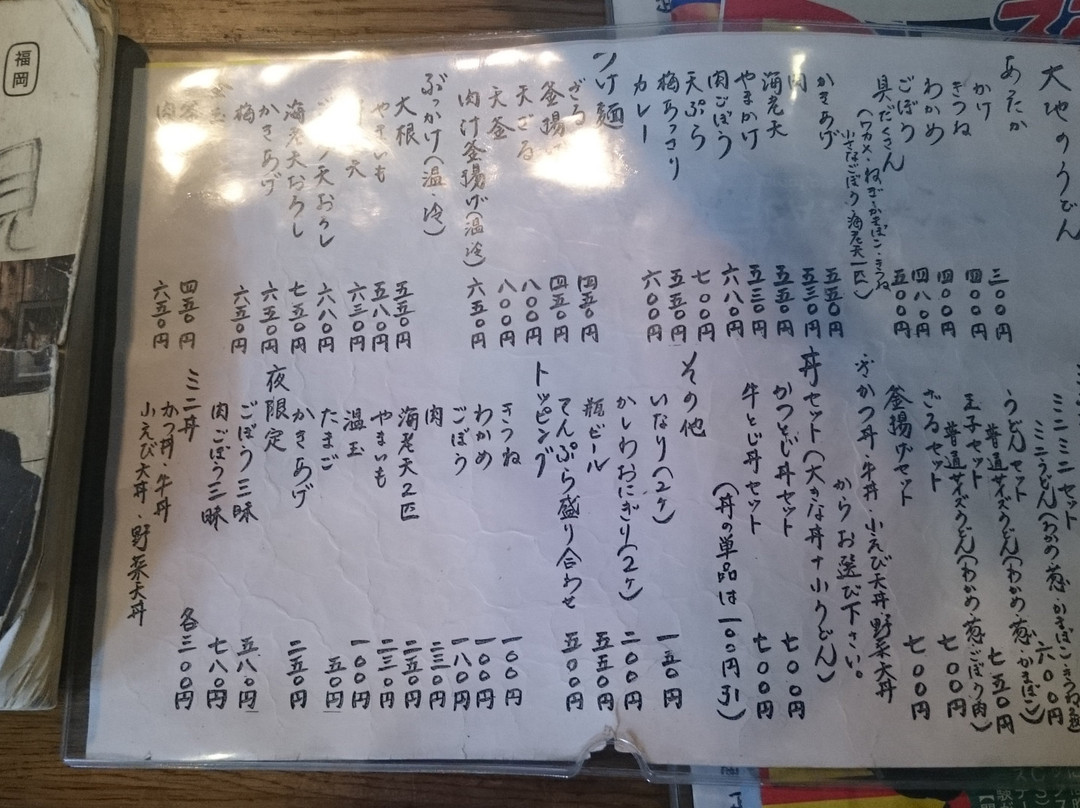 福岡
大地のうどん
あったか
かけ 三〇〇円
きつね 四〇〇円
わかめ 四〇〇円
ごぼう 四八〇円
具だくさん 五〇〇円
(ワカメ・ねぎ・かまぼこ・きつね
小さなごぼう・海老天一匹)
かきあげ 五五〇円
肉 五三〇円
海老天 五五〇円
やまかけ 五三〇円
肉ごぼう 六八〇円
天ぷら 七〇〇円
梅あっさり 五五〇円
カレー 六〇〇円
つけ麺
ざる 四五〇円
釜揚げ 四五〇円
天ざる 八〇〇円
天釜 八〇〇円
肉汁釜揚げ(温冷) 六五〇円
ぶっかけ(温冷)
大根 五五〇円
やまいも 五八〇円
天 六三〇円
天おろし 六八〇円
海老天おろし 七五〇円
かきあげ 六五〇円
梅 六五〇円
玉 四五〇円
肉 六五〇円
ミニミニセット 六〇〇円
ミニうどん(わかめ・葱・かまぼこ・きつね
うどんセット 七五〇円
普通サイズうどん(わかめ・葱・かまぼこ)
玉子セット 七〇〇円
普通サイズうどん(わかめ・葱・ごぼう・肉)
ざるセット 七〇〇円
釜揚げセット 七〇〇円
かつ丼・牛丼・小えび天丼・野菜天丼
からお選び下さい。
丼セット(大きな丼+小うどん)
かつとじ丼セット 七〇〇円
牛とじ丼セット 七〇〇円
(丼の単品は一〇〇円引)
その他
いなり(2ケ) 一五〇円
かしわおにぎり(2ケ) 二〇〇円
瓶ビール 五五〇円
てんぷら盛り合わせ 五〇〇円
トッピング
きつね 一〇〇円
わかめ 一〇〇円
ごぼう 一八〇円
肉 二三〇円
海老天2匹 二五〇円
やまいも 二三〇円
温玉 一〇〇円
たまご 五〇円
かきあげ 二五〇円
夜限定
ごぼう三昧 五八〇円
肉ごぼう三昧 七八〇円
ミニ丼 各三〇〇円
かつ丼・牛丼
小えび天丼・野菜天丼